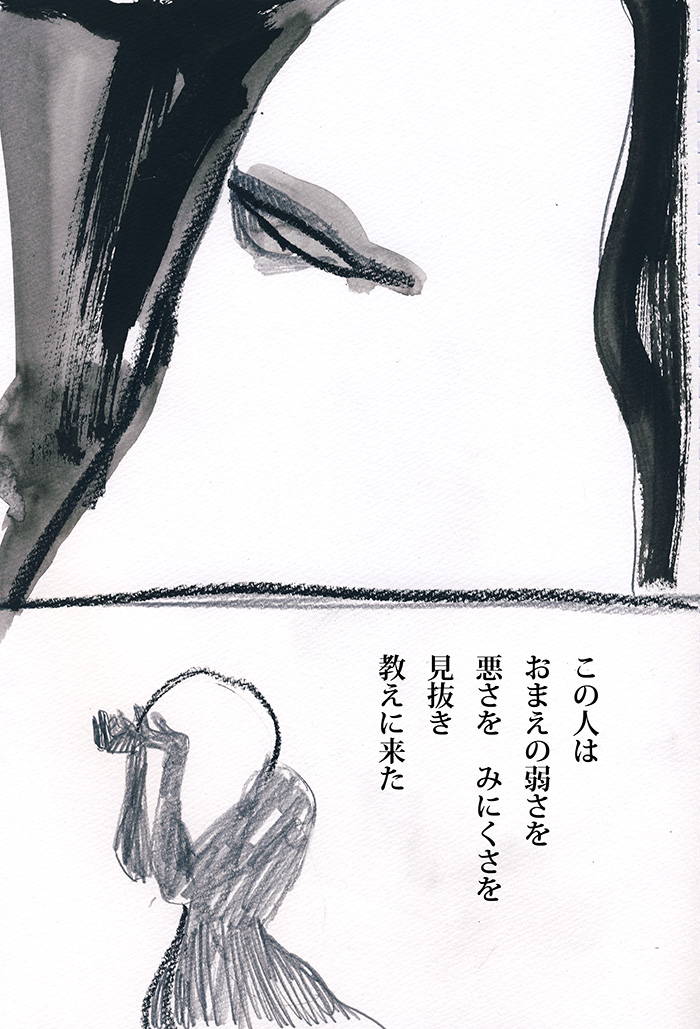 この人は
おまえの弱さを
悪さを　みにくさを
見抜き
教えに来た